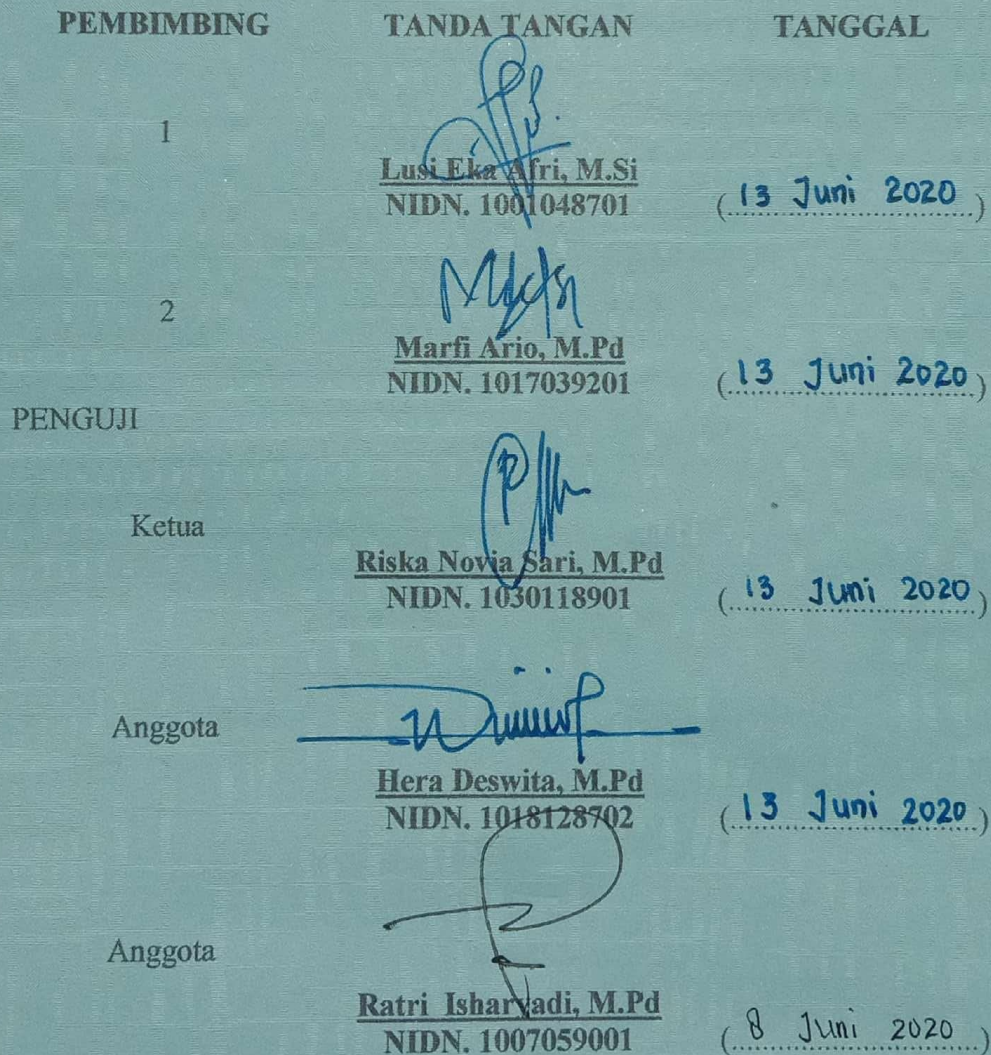 PEMBIMBING TANDA TANGAN TANGGAL
1
Lusi Eka Afri, M.Si
NIDN. 1001048701 (13 Juni 2020)
2
Marfi Ario, M.Pd
NIDN. 1017039201 (13 Juni 2020)
PENGUJI
Ketua
Riska Novia Sari, M.Pd
NIDN. 1030118901 (13 Juni 2020)
Anggota
Hera Deswita, M.Pd
NIDN. 1018128702 (13 Juni 2020)
Anggota
Ratri Isharyadi, M.Pd
NIDN. 1007059001 (8 Juni 2020)